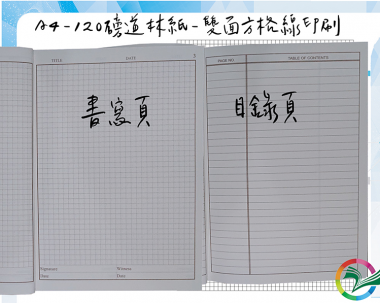 A4-120磅道林紙-雙面方格線印刷
TITLE DATE
書寫頁
Signature Witness
Date Date
PAGE NO. TABLE OF CONTENTS
目錄頁